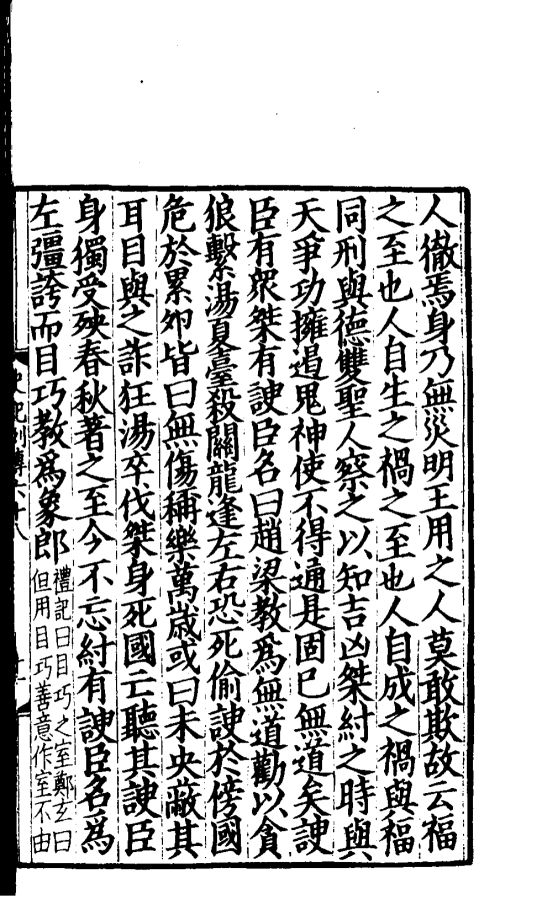 人徹焉身乃無災明王用之人莫敢欺故云福
之至也人自生之禍之至也人自成之禍與福
同刑與德雙聖人察之以知吉凶桀紂之時與
天爭功擁遏鬼神使不得通是固已無道矣諛
臣有衆桀有諛臣名曰趙梁教爲無道勸以貪
狼繫湯夏臺殺關龍逢左右恐死偷諛於傍國
危於累卵皆曰無傷稱樂萬歲或曰未央蔽其
耳目與之詐狂湯卒伐桀身死國亡聽其諛臣
身獨受殃春秋著之至今不忘紂有諛臣名爲
左彊誇而目巧教爲象郎
禮記曰目巧之室鄭玄曰
但用目巧善意作室不由
史記列傳六十八